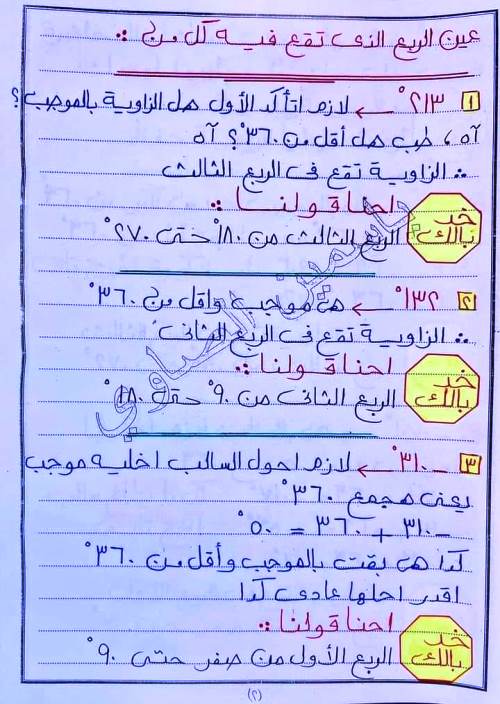 عين الربع الذى تقع فيه كل من :
١ ٢١٣° ← لازم اتأكد الأول هل الزاوية بالموجب ؟
آه ، طب هل أقل من ٣٦٠° ؟ آه
∴ الزاوية تقع فى الربع الثالث
خد بالك
احنا قولنا :
الربع الثالث من ١٨٠° حتى ٢٧٠°
٢ ١٣٢° ← هى موجب واقل من ٣٦٠°
∴ الزاوية تقع فى الربع الثانى
خد بالك
احنا قولنا :
الربع الثانى من ٩٠° حتى ١٨٠°
٣ -٣١٠° ← لازم احول السالب اخليه موجب
يعنى هجمع ٣٦٠°
-٣١٠ + ٣٦٠ = ٥٠°
كدا هى بقت بالموجب وأقل من ٣٦٠°
اقدر احلها عادى كدا
خد بالك
احنا قولنا :
الربع الأول من صفر حتى ٩٠°
(٢)